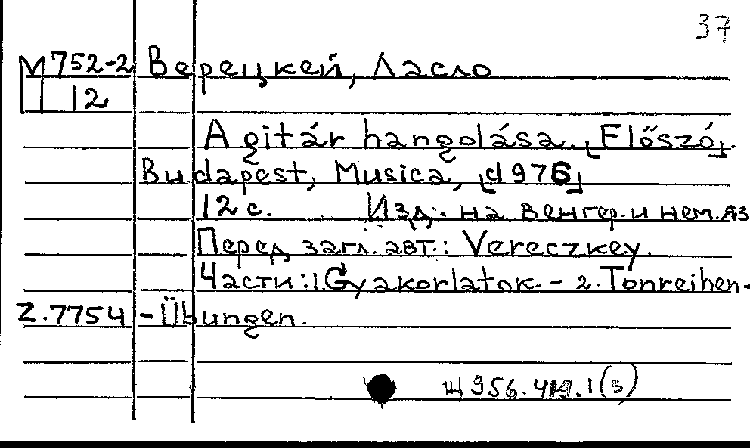 37
М 752-2 Верецкей, Ласло
12
A gitár hangolása. [Előszó].
Budapest, Musica, [d976]
12 с. Изд. на венгер. и нем. яз
Перед загл. авт.: Vereczkey.
Части: 1. Gyakorlatok. - 2. Tonreihen-
Z.7754 -Übungen.
Щ956.419.1(3)